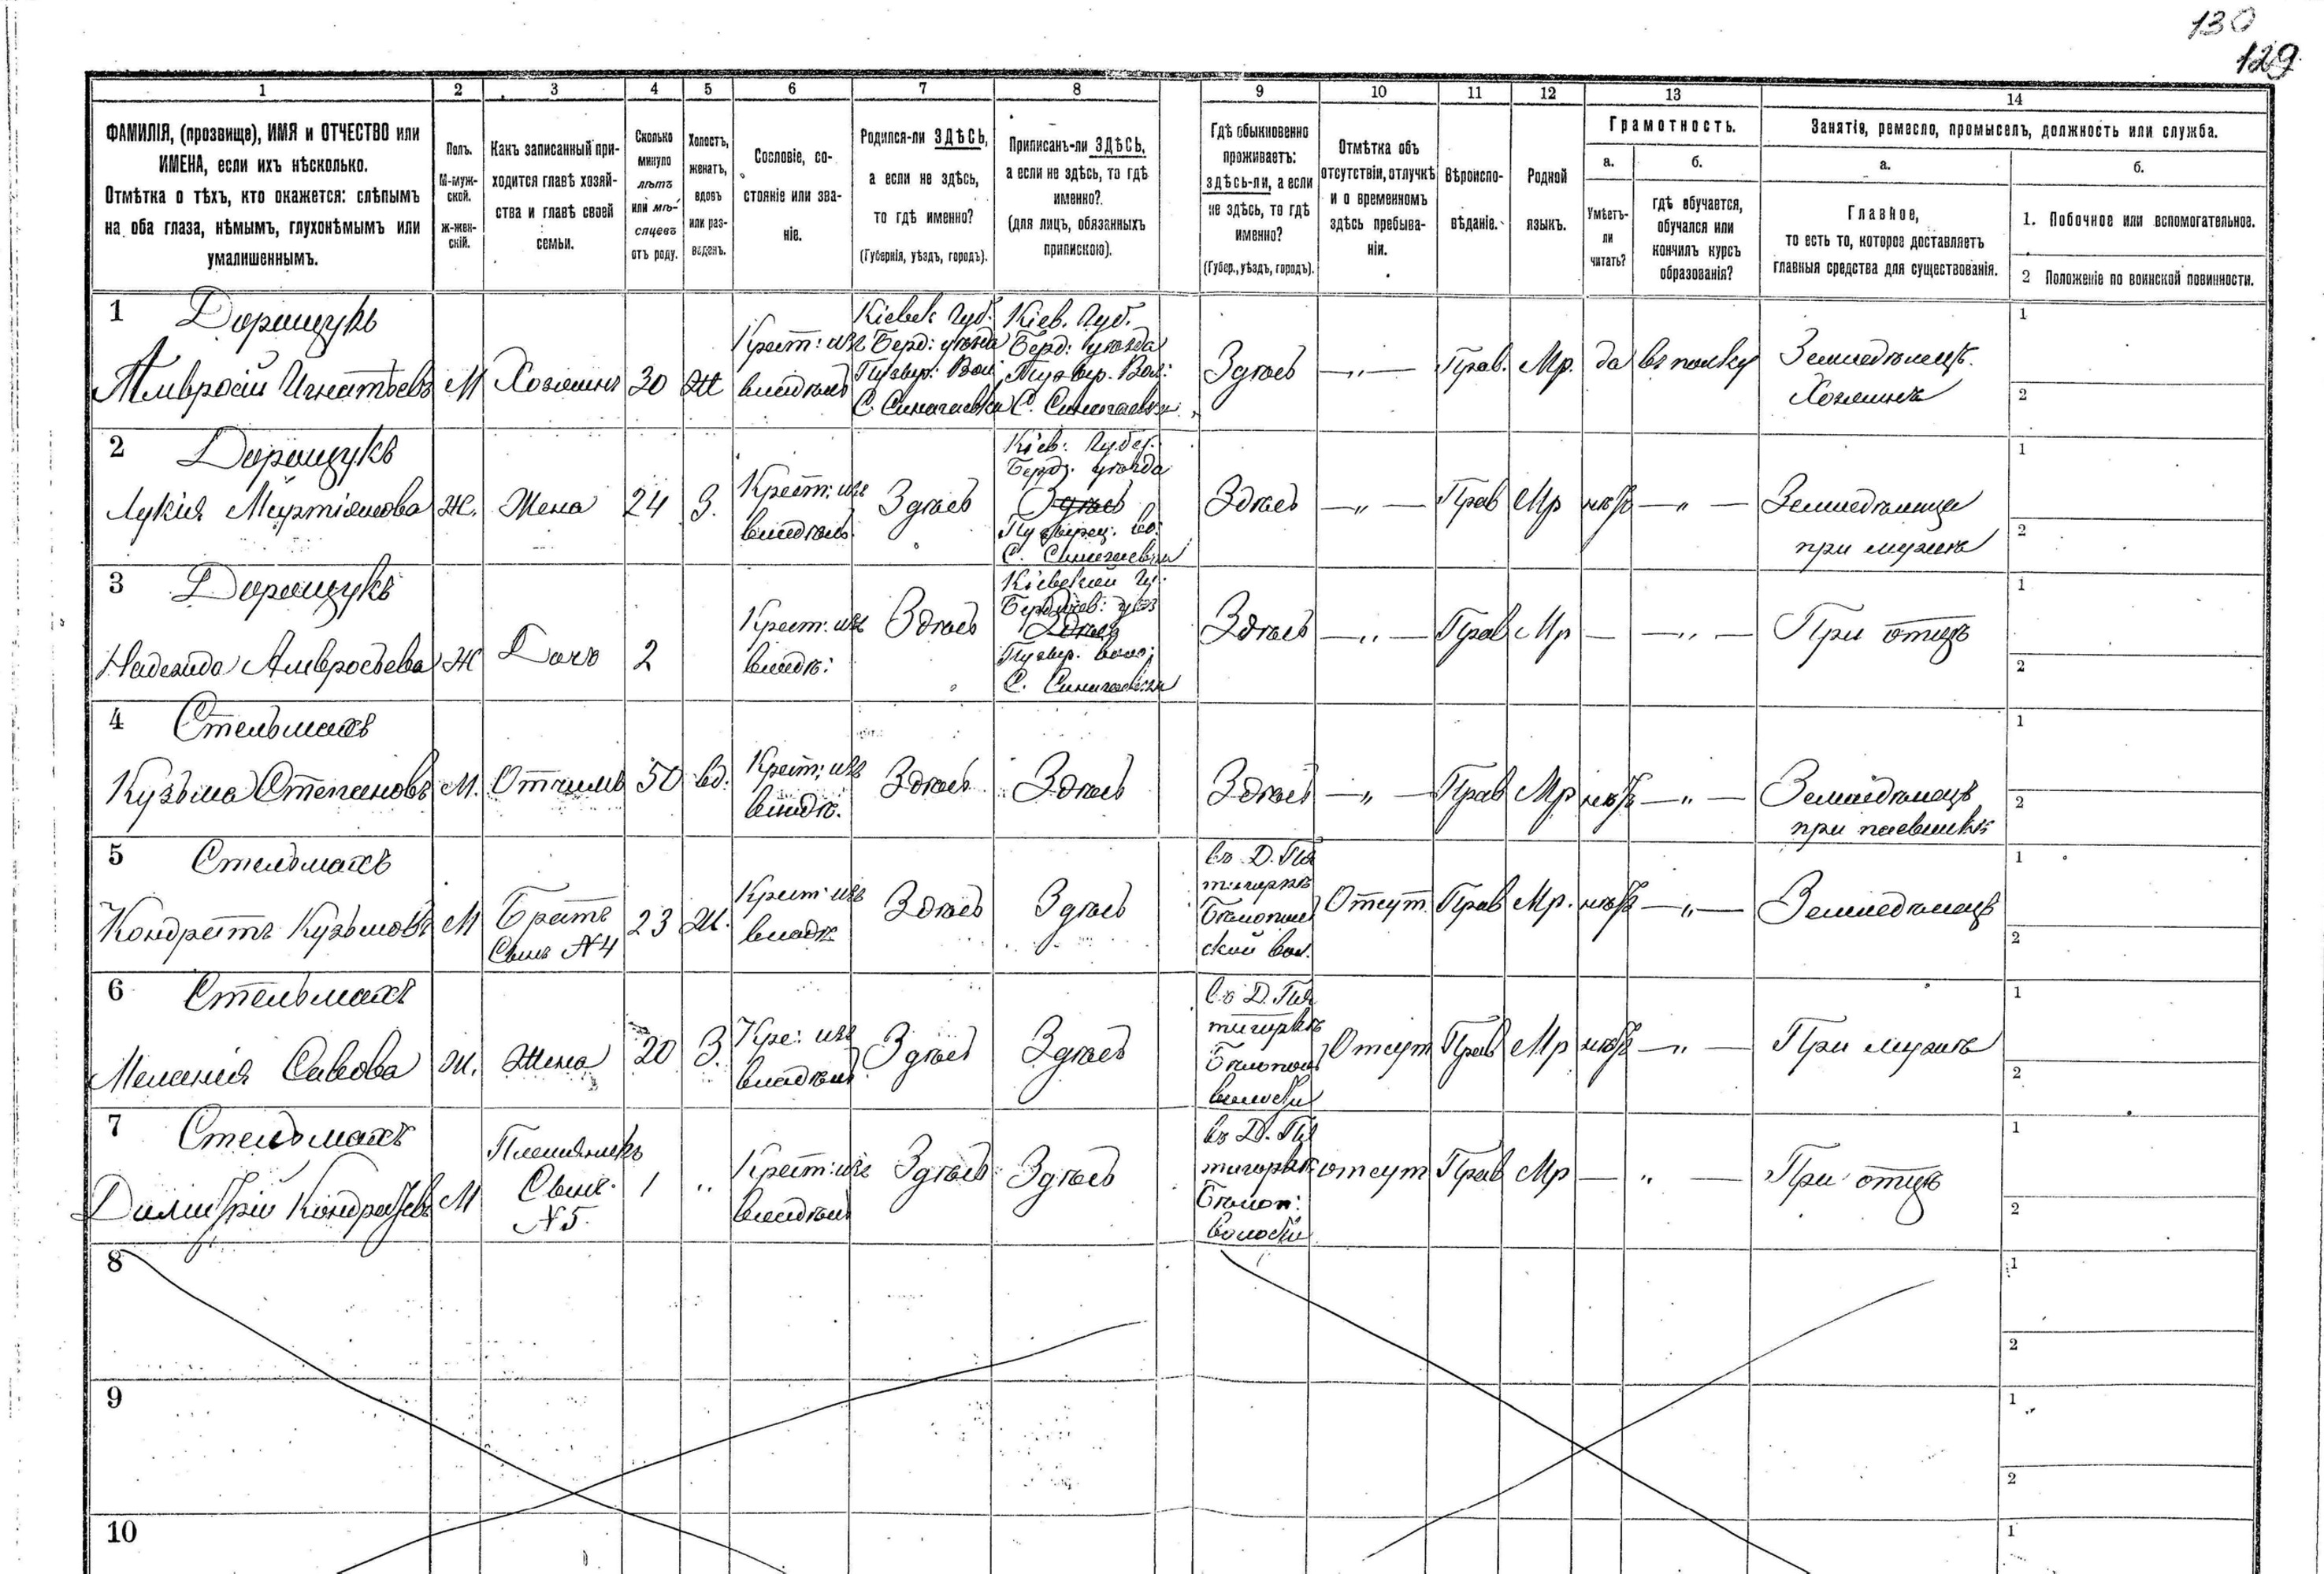 130
129
1
2
3
4
5
6
7
8
9
10
11
12
13
14
ФАМИЛІЯ, (прозвище), ИМЯ и ОТЧЕСТВО или
ИМЕНА, если ихъ нѣсколько.
Отмѣтка о тѣхъ, кто окажется: слѣпымъ
на оба глаза, нѣмымъ, глухонѣмымъ или
умалишеннымъ.
Полъ.
М-муж-
ской.
Ж-жен-
скій.
Какъ записанный при-
ходится главѣ хозяй-
ства и главѣ своей
семьи.
Сколько
минуло
лѣтъ
или мѣ-
сяцевъ
отъ роду.
Холостъ,
женатъ,
вдовъ
или раз-
веденъ.
Сословіе, со-
стояніе или зва-
ніе.
Родился-ли ЗДѢСЬ,
а если не здѣсь,
то гдѣ именно?
(Губернія, уѣздъ, городъ).
Приписанъ-ли ЗДѢСЬ,
а если не здѣсь, то гдѣ
именно?
(для лицъ, обязанныхъ
припискою).
Гдѣ обыкновенно
проживаетъ:
здѣсь-ли, а если
не здѣсь, то гдѣ
именно?
(Губер., уѣздъ, городъ).
Отмѣтка объ
отсутствіи, отлучкѣ
и о временномъ
здѣсь пребыва-
ніи.
Вѣроиспо-
вѣданіе.
Родной
языкъ.
Грамотность.
а.
Умѣетъ-
ли
читать?
б.
гдѣ обучается,
обучался или
кончилъ курсъ
образованія?
Занятіе, ремесло, промыселъ, должность или служба.
а.
Главное,
то есть то, которое доставляетъ
главныя средства для существованія.
б.
1. Побочное или вспомогательное.
2 Положеніе по воинской повинности.
1 Доращукъ
Амвросій Игнатьевъ М Хозяинъ 30 Ж
Крест: изъ
владѣль
Кіевск Губ.
Берд: уѣзда
Пузыр: Вол
С. Сингаевка
Кіев. Губ.
Берд: уѣзда
Пузыр. Вол:
С. Сингаевка
Здѣсь — „ — Прав. Мр. да въ полку
Земледѣлецъ.
Хозяинъ
1
2
2 Доращукъ
Лукія Мартіянова Ж. Жена 24 З.
Крест: изъ
владѣль
Здѣсь
Кіев: Губер.
Берд. уѣзда
Здѣсь
Пузырец. во:
С. Сингаевка
Здѣсь — „ — Прав Мр нѣтъ — „ —
Земледѣлица
при мужѣ
1
2
3 Доращукъ
Надежда Амвросьева Ж Дочь 2
Крест: изъ
владѣ:
Здѣсь
Кіевской Гу.
Бердичев: уѣз
Здѣсь
Пузыр. воло:
С. Сингаевка
Здѣсь — „ — Прав Мр — — „ — При отцѣ
1
2
4 Стельмахъ
Кузьма Степановъ М. Отчимъ 50 вд.
Крест: изъ
владѣ.
Здѣсь Здѣсь Здѣсь — „ — Прав Мр нѣтъ — „ —
Земледѣлецъ
при пасынкѣ
1
2
5 Стельмахъ
Кондратъ Кузьмовъ М
Братъ
Сынъ №4
23 Ж.
Крест: изъ
владѣ
Здѣсь Здѣсь
въ Д. Пя
тигоркѣ
Бѣлопол
ской вол.
Отсут. Прав Мр. нѣтъ — „ — Земледѣлецъ
1
2
6 Стельмахъ
Меланія Савова Ж. Жена 20 З.
Кре: изъ
владѣль
Здѣсь Здѣсь
въ Д. Пя
тигоркѣ
Бѣлопол
волости
Отсут Прав Мр нѣтъ — „ — При мужѣ
1
2
7 Стельмахъ
Димитрій Кондратьевъ М
Племянникъ
Сынъ
№5.
1 „
Крест: изъ
владѣль
Здѣсь Здѣсь
въ Д. Пя
тигоркѣ
Бѣлоп:
волости
отсут Прав Мр — „ — При отцѣ
1
2
8
1
2
9
1
2
10
1